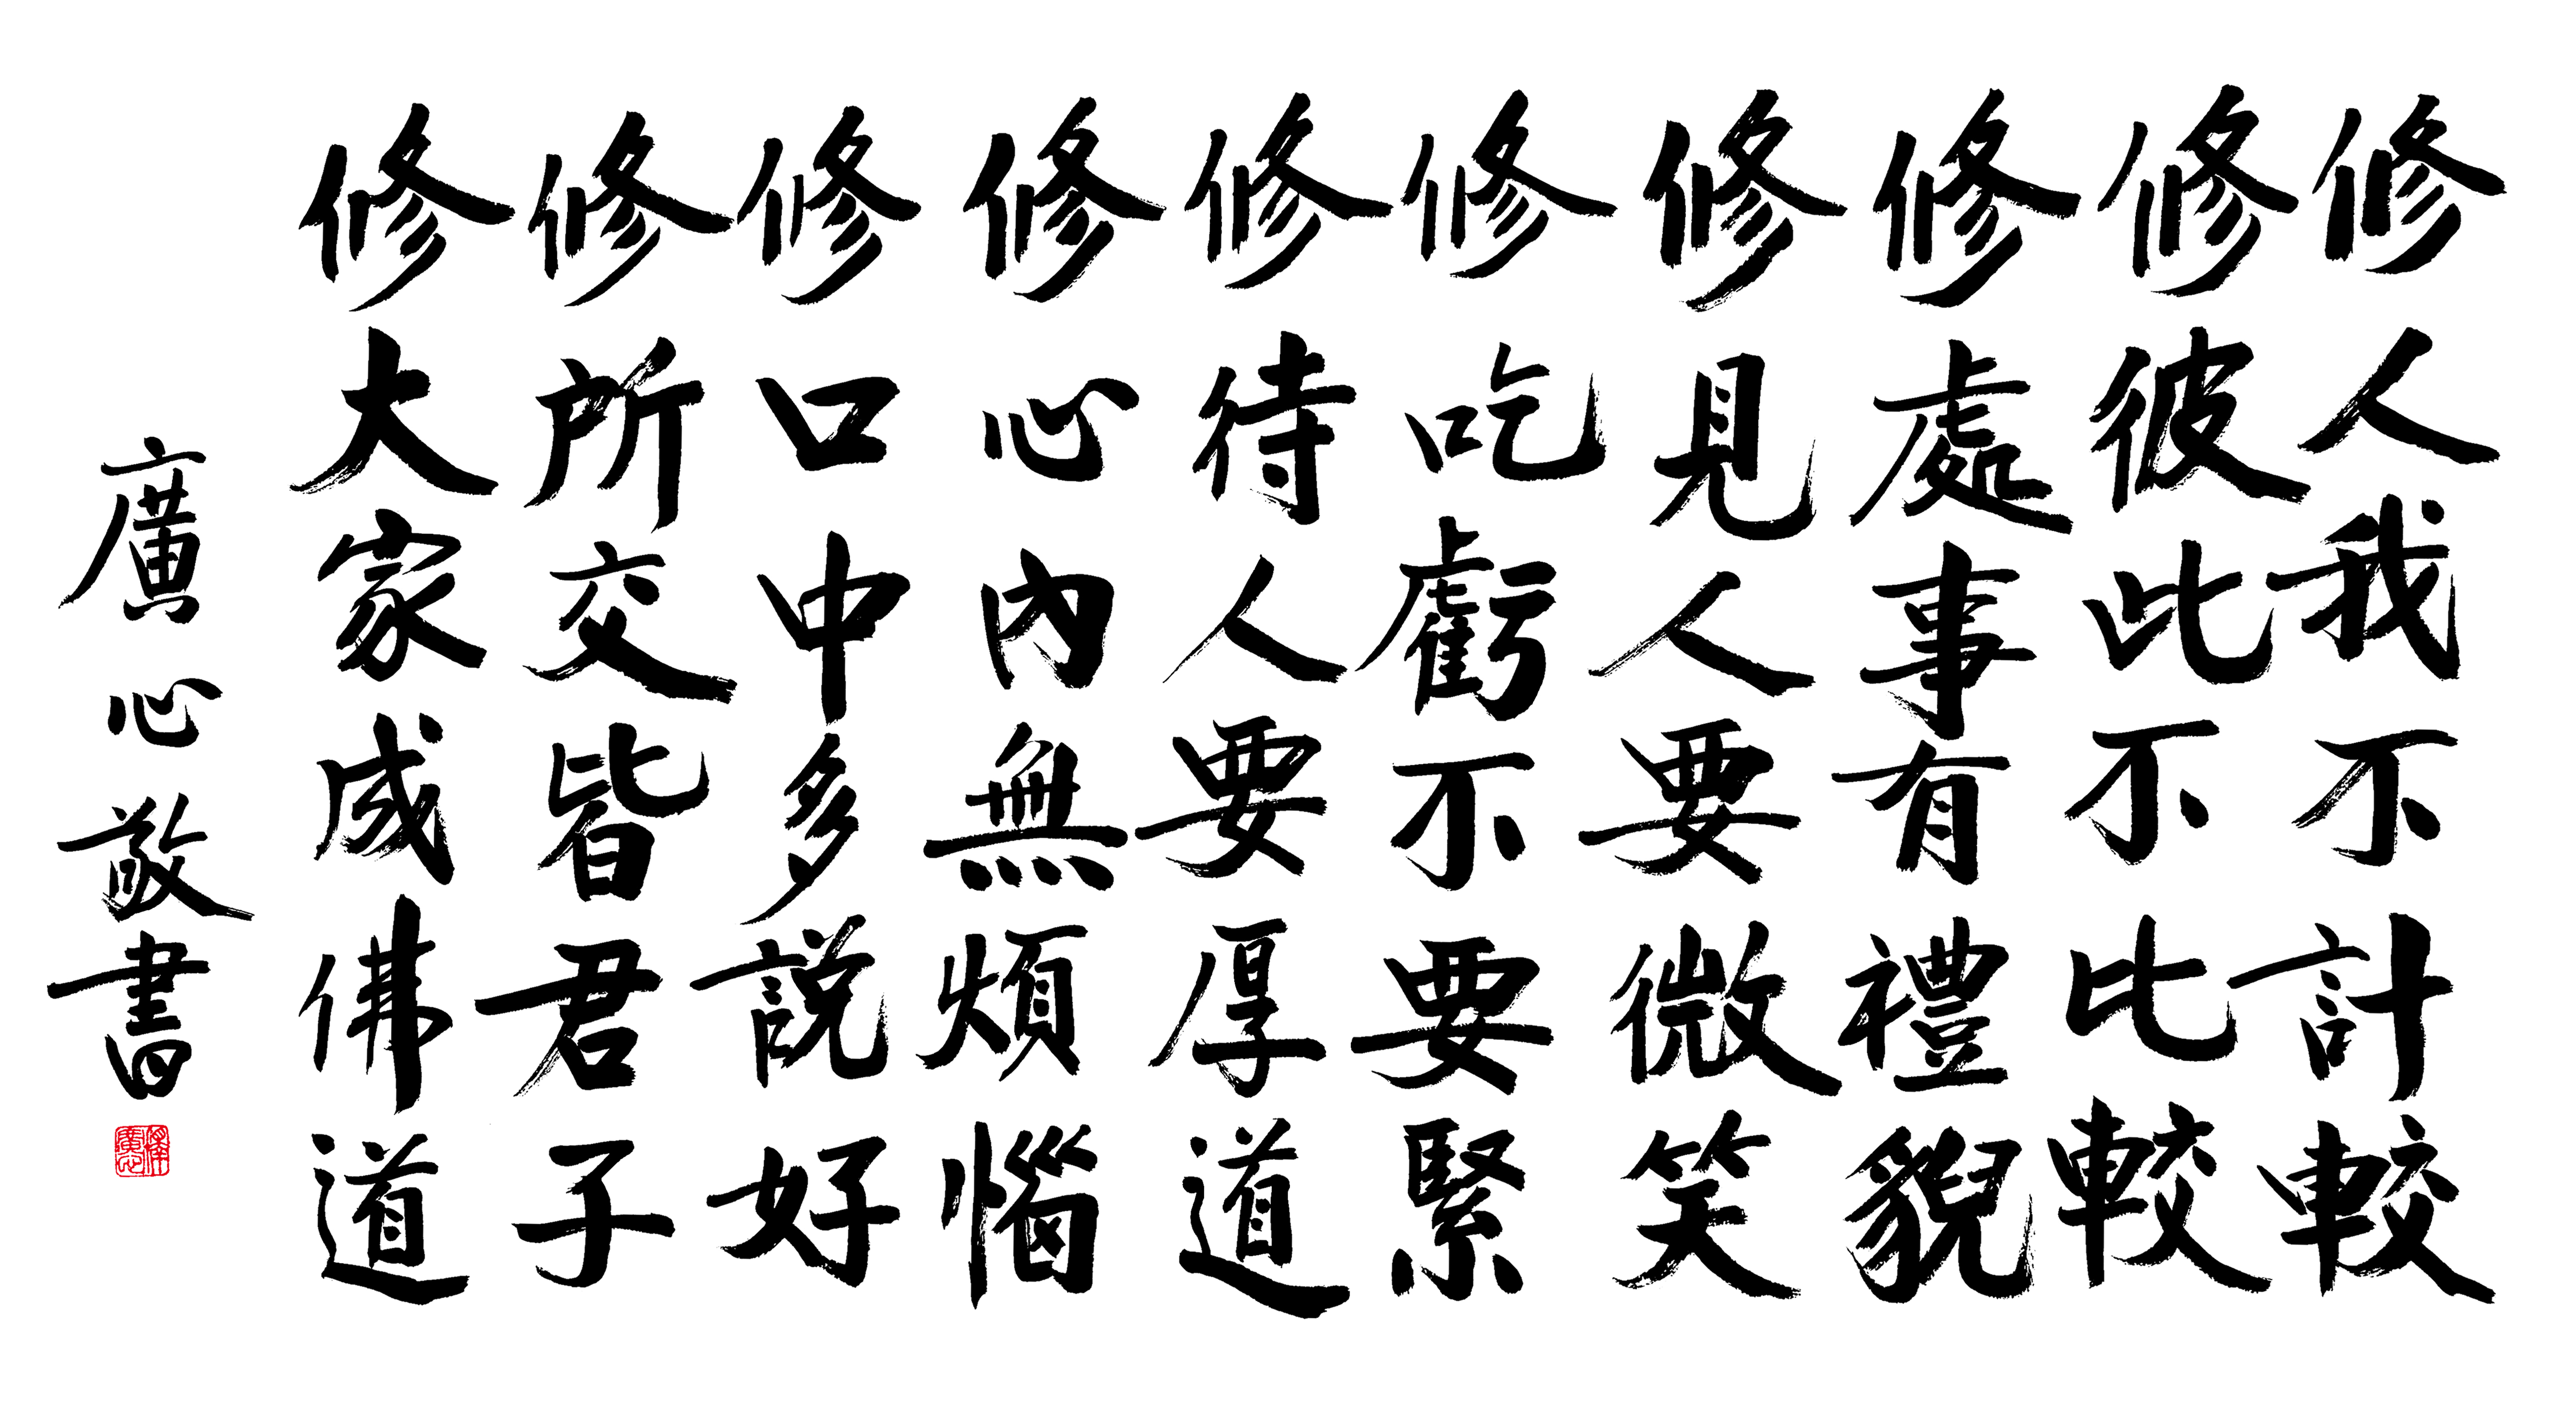 修人我不計較
修彼此不比較
修處事有禮貌
修見人要微笑
修吃虧不要緊
修待人要厚道
修心內無煩惱
修口中多說好
修所交皆君子
修大家成佛道
廣心敬書